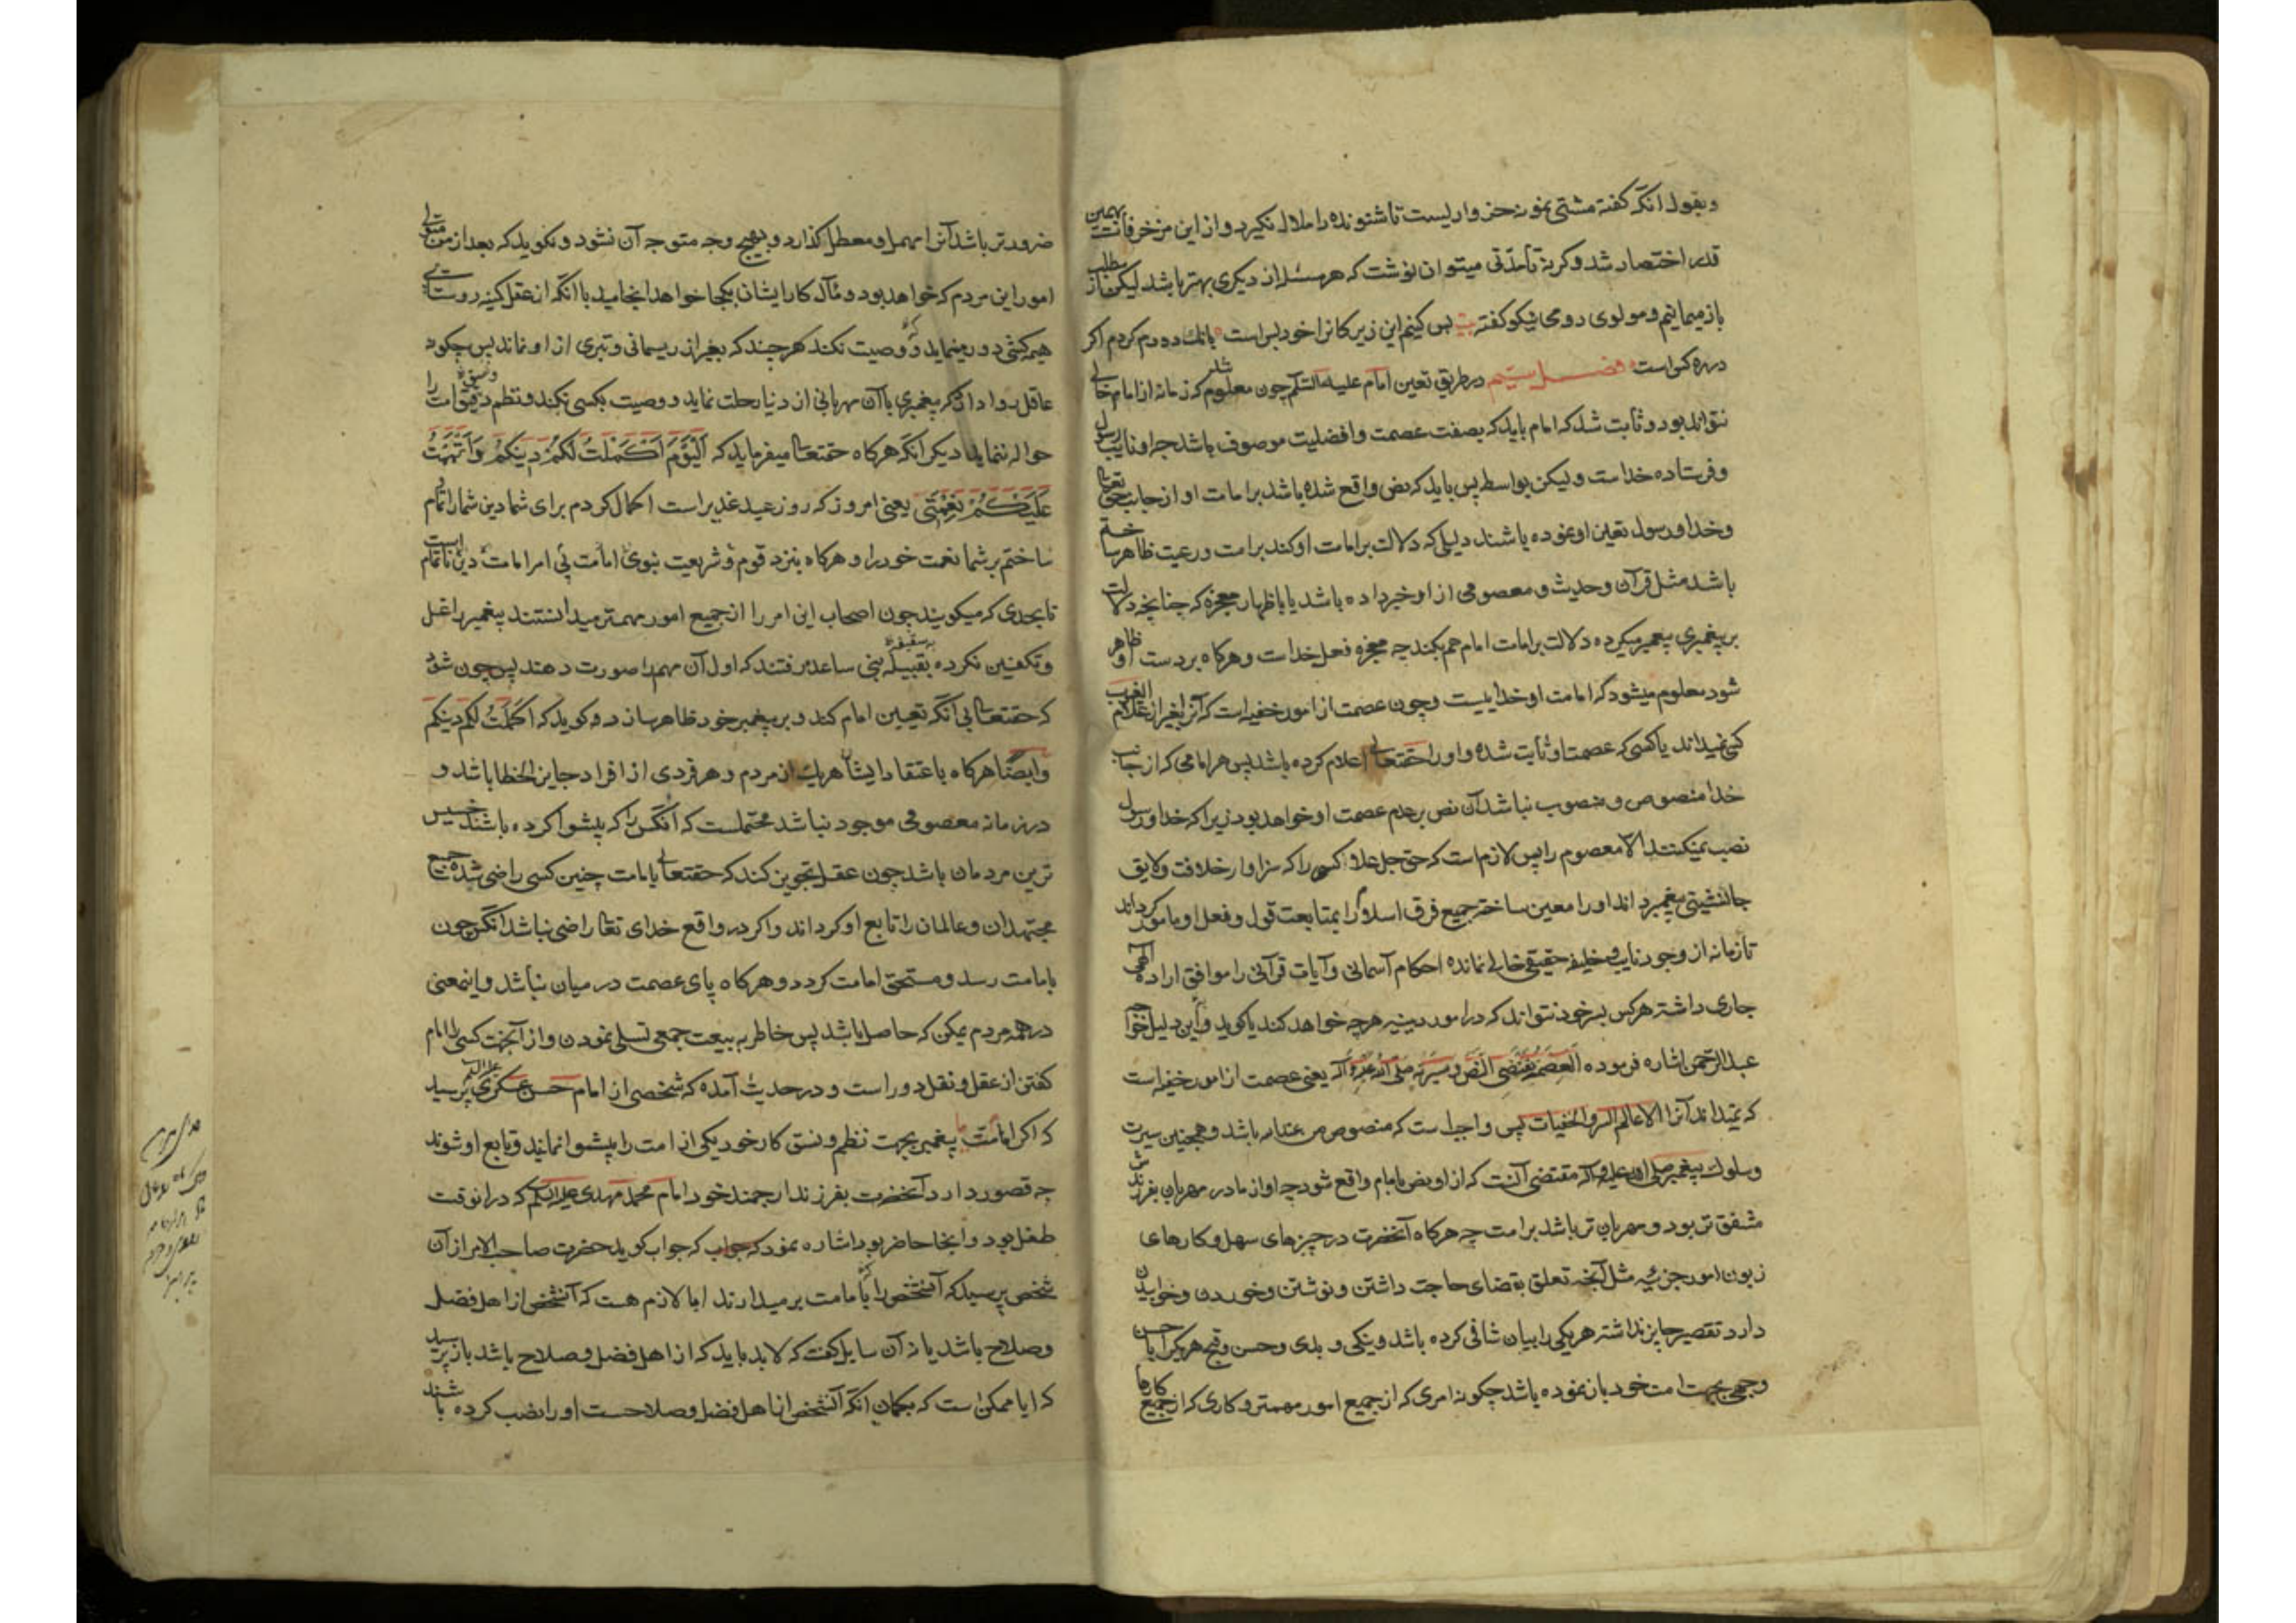 وبقول انکه کفته مشتی نمونه خروار لیست تا شنونده را ملال نکیرد و از این مزخرفات بهمین
قدر اختصار شد وکرنه تا مدتی میتوان نوشت که هر مسئله از دیکری بهتر باشد لیکن از مطلب
باز میمانیم و مولوی رومی نیکو کفته بیت بس کنیم این زیرکانرا خود بس است بانک دو دم کردم اکر
در ده کس است فصل بیستم در طریق تعین امام علیه السلم چون معلوم شد که زمانه از امام خالی
نتواند بود و ثابت شد که امام باید که بصفت عصمت و افضلیت موصوف باشد چه او نایب رسول
و فرستاده خداست ولیکن بواسطه پس باید که نص واقع شده باشد بر امامت او از جانب حق تعالی
و خدا و رسول تعین او نموده باشند دلیلی که دلالت بر امامت او کند بر امت و رعیت ظاهر ساخته
باشد مثل قرآن و حدیث و معصومی از او خبر داده باشد یا باظهار معجزه که چنانچه دلالت
بر پیغمبری پیغمبر میکرده دلالت بر امامت امام هم بکند چه معجزه فعل خداست و هرکاه بر دست او ظاهر
شود معلوم میشود که امامت او خداییست و چون عصمت از امور خفیه است که آنرا بغیر از علام الغیوب
کسی نمیداند یا کسی که عصمت او ثابت شده و او را حقتعالی اعلام کرده باشد پس هر امامی که از جانب
خدا منصوص و منصوب نباشد آن نص بر عدم عصمت او خواهد بود زیرا که خدا و رسول
نصب نمیکنند الا معصوم را پس لازم است که حق جل و علا کسی را که سزاوار خلافت و لایق
جانشینی پیغمبر داند او را معین ساخته جمیع فرق اسلام را بمتابعت قول و فعل او مامور کرداند
تا زمانه از وجود نایب و خلیفه حقیقی خالی نمانده احکام آسمانی و آیات قرآنی را موافق اراده الهی
جاری داشته هر کس بسر خود نتواند که در امور دینیه هر چه خواهد کند یا کوید و این دلیل
عبدالرحمن اشاره فرموده العصمة تقتضی النص و سیرته صلی الله علیه و آله یعنی عصمت از امور خفیه است
که نمیداند آنرا الا عالم السر و الخفیات پس واجب است که منصوص من عند الله باشد و همچنین سیرت
و سلوک پیغمبر صلی الله علیه و آله مقتضی آنست که از او نص بامام واقع شود چه او از مادر مهربان بفرزندش
مشفق تر بود و مهربان تر باشد بر امت چه هرکاه آنحضرت در چیزهای سهل و کارهای
زبون امور جزئیه مثل آنچه تعلق بقضای حاجت داشتن و نوشتن و خوردن و خوابیدن
دارد تقصیر جایز نداشته هر یکی را بیان شافی کرده باشد و نیکی و بدی و حسن و قبح هر یک را با حسن
وجهی بجهت امت خود باز نموده باشد چکونه امری که از جمیع امور مهمتر و کاری که از جمیع کارها
ضرورتر باشد آنرا مهمل و معطل کذارد و بهیچ وجه متوجه آن نشود و نکوید که بعد از من متولی
امور این مردم که خواهد بود و مآل کار ایشان بکجا خواهد انجامید با آنکه از عقل کمینه روستایی
هیمه کشی دور مینماید که وصیت نکند هرچند که بغیر از ریسمانی و تبری از او نماند پس چکونه
عاقل روا دارد که پیغمبری با آن مهربانی از دنیا رحلت نماید و وصیت بکسی نکند و نظم و نسق امت را
حواله ننماید دیکر آنکه هرکاه حقتعالی میفرماید که الیوم اکملت لکم دینکم و اتممت
علیکم نعمتی یعنی امروز که روز عید غدیر است اکمال کردم برای شما دین شما را و تمام
ساختم بر شما نعمت خود را و هرکاه بنزد قوم و شریعت نبوی امامت بی امر امامت دین ناتمام است
تا بحدی که میکویند چون اصحاب این امر را از جمیع امور مهمتر میدانستند پیغمبر را غسل
و تکفین نکرده بسقیفه بنی ساعده رفتند که اول آن مهم را صورت دهند پس چون شود
که حقتعالی بی آنکه تعیین امام کند و بر پیغمبر خود ظاهر سازد و کوید که اکملت لکم دینکم
و ایضا هرکاه باعتقاد ایشان هر یک از مردم و هر فردی از افراد جایز الخطا باشد و
در زمانه معصومی موجود نباشد محتملست که آنکس را که پیشوا کرده باشند خسیس
ترین مردمان باشد چون عقل تجویز کند که حقتعالی بامامت چنین کسی راضی شده جمیع
مجتهدان و عالمان را تابع او کرداند و اکر در واقع خدای تعالی راضی نباشد آنکس چون
بامامت رسد و مستحق امامت کردد و هرکاه پای عصمت در میان نباشد و اینمعنی
در همه مردم یمکن که حاصل باشد پس خاطر به بیعت جمعی تسلی نمودن و از آنجهت کسی را امام
کفتن از عقل و نقل دور است و در حدیث آمده که شخصی از امام حسن عسکری علیه السلم پرسید
که اکر امت پیغمبر بجهت نظم و نسق کار خود یکی از امت را پیشوا نمایند و تابع او شوند
چه قصور دارد آنحضرت بفرزند ارجمند خود امام محمد مهدی علیه السلم که در انوقت
طفل بود و انجا حاضر بود اشاره نمود که جواب کوید حضرت صاحب الامر از آن
شخص پرسید که آنشخص را که بامامت برمیدارند ایا لازم هست که آنشخص از اهل فضل
و صلاح باشد یا نه آن سایل کفت که لابد باید که از اهل فضل و صلاح باشد باز پرسید
که ایا ممکن است که بکمان آنکه آنشخص از اهل فضل و صلاحست او را نصب کرده باشند